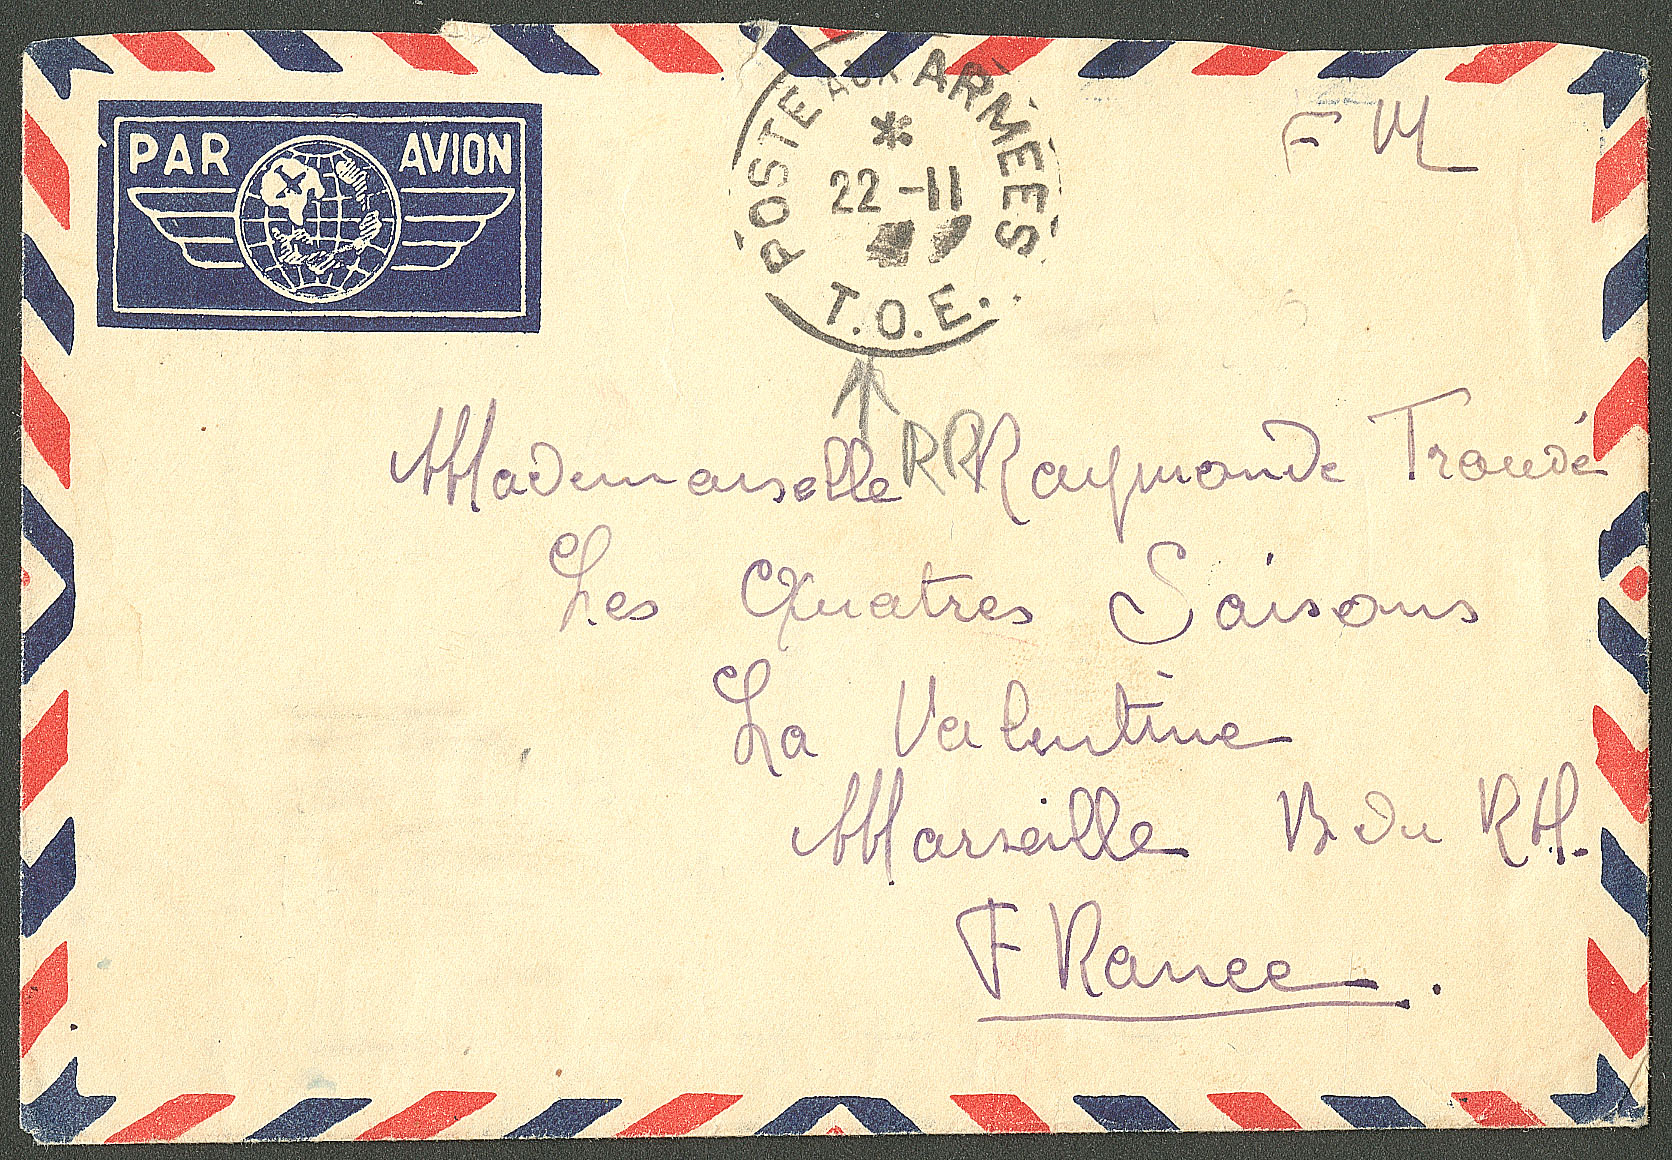 PAR AVION
POSTE AUX ARMÉES
*
22-11
T.O.E.
F M
RR
Mademoiselle Raymonde Troudé
Les Quatres Saisons
La Valentine
Marseille B du RH.
FRance.